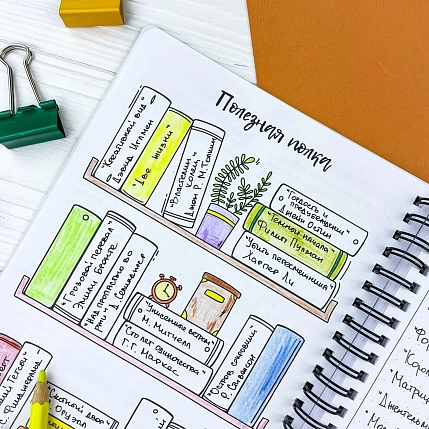 Полезная полка
"Креативный вид"
Дэвид Иглмен
"Две жизни"
"Властелин
колец"
Джон Р. М. Толкин
"Гордость и
предубеждение"
Джейн Остин
"Темные начала"
Филип Пулман
"Убить пересмешника"
Харпер Ли
"Грозовой перевал"
Эмили Бронте
"Над пропастью во
ржи"
Д. Сэлинджер
"Унесенные ветром"
М. Митчелл
"Сто лет одиночества"
Г. Г. Маркес
"Остров сокровищ"
Р. Стивенсон
"Скотный двор"
Оруэлл